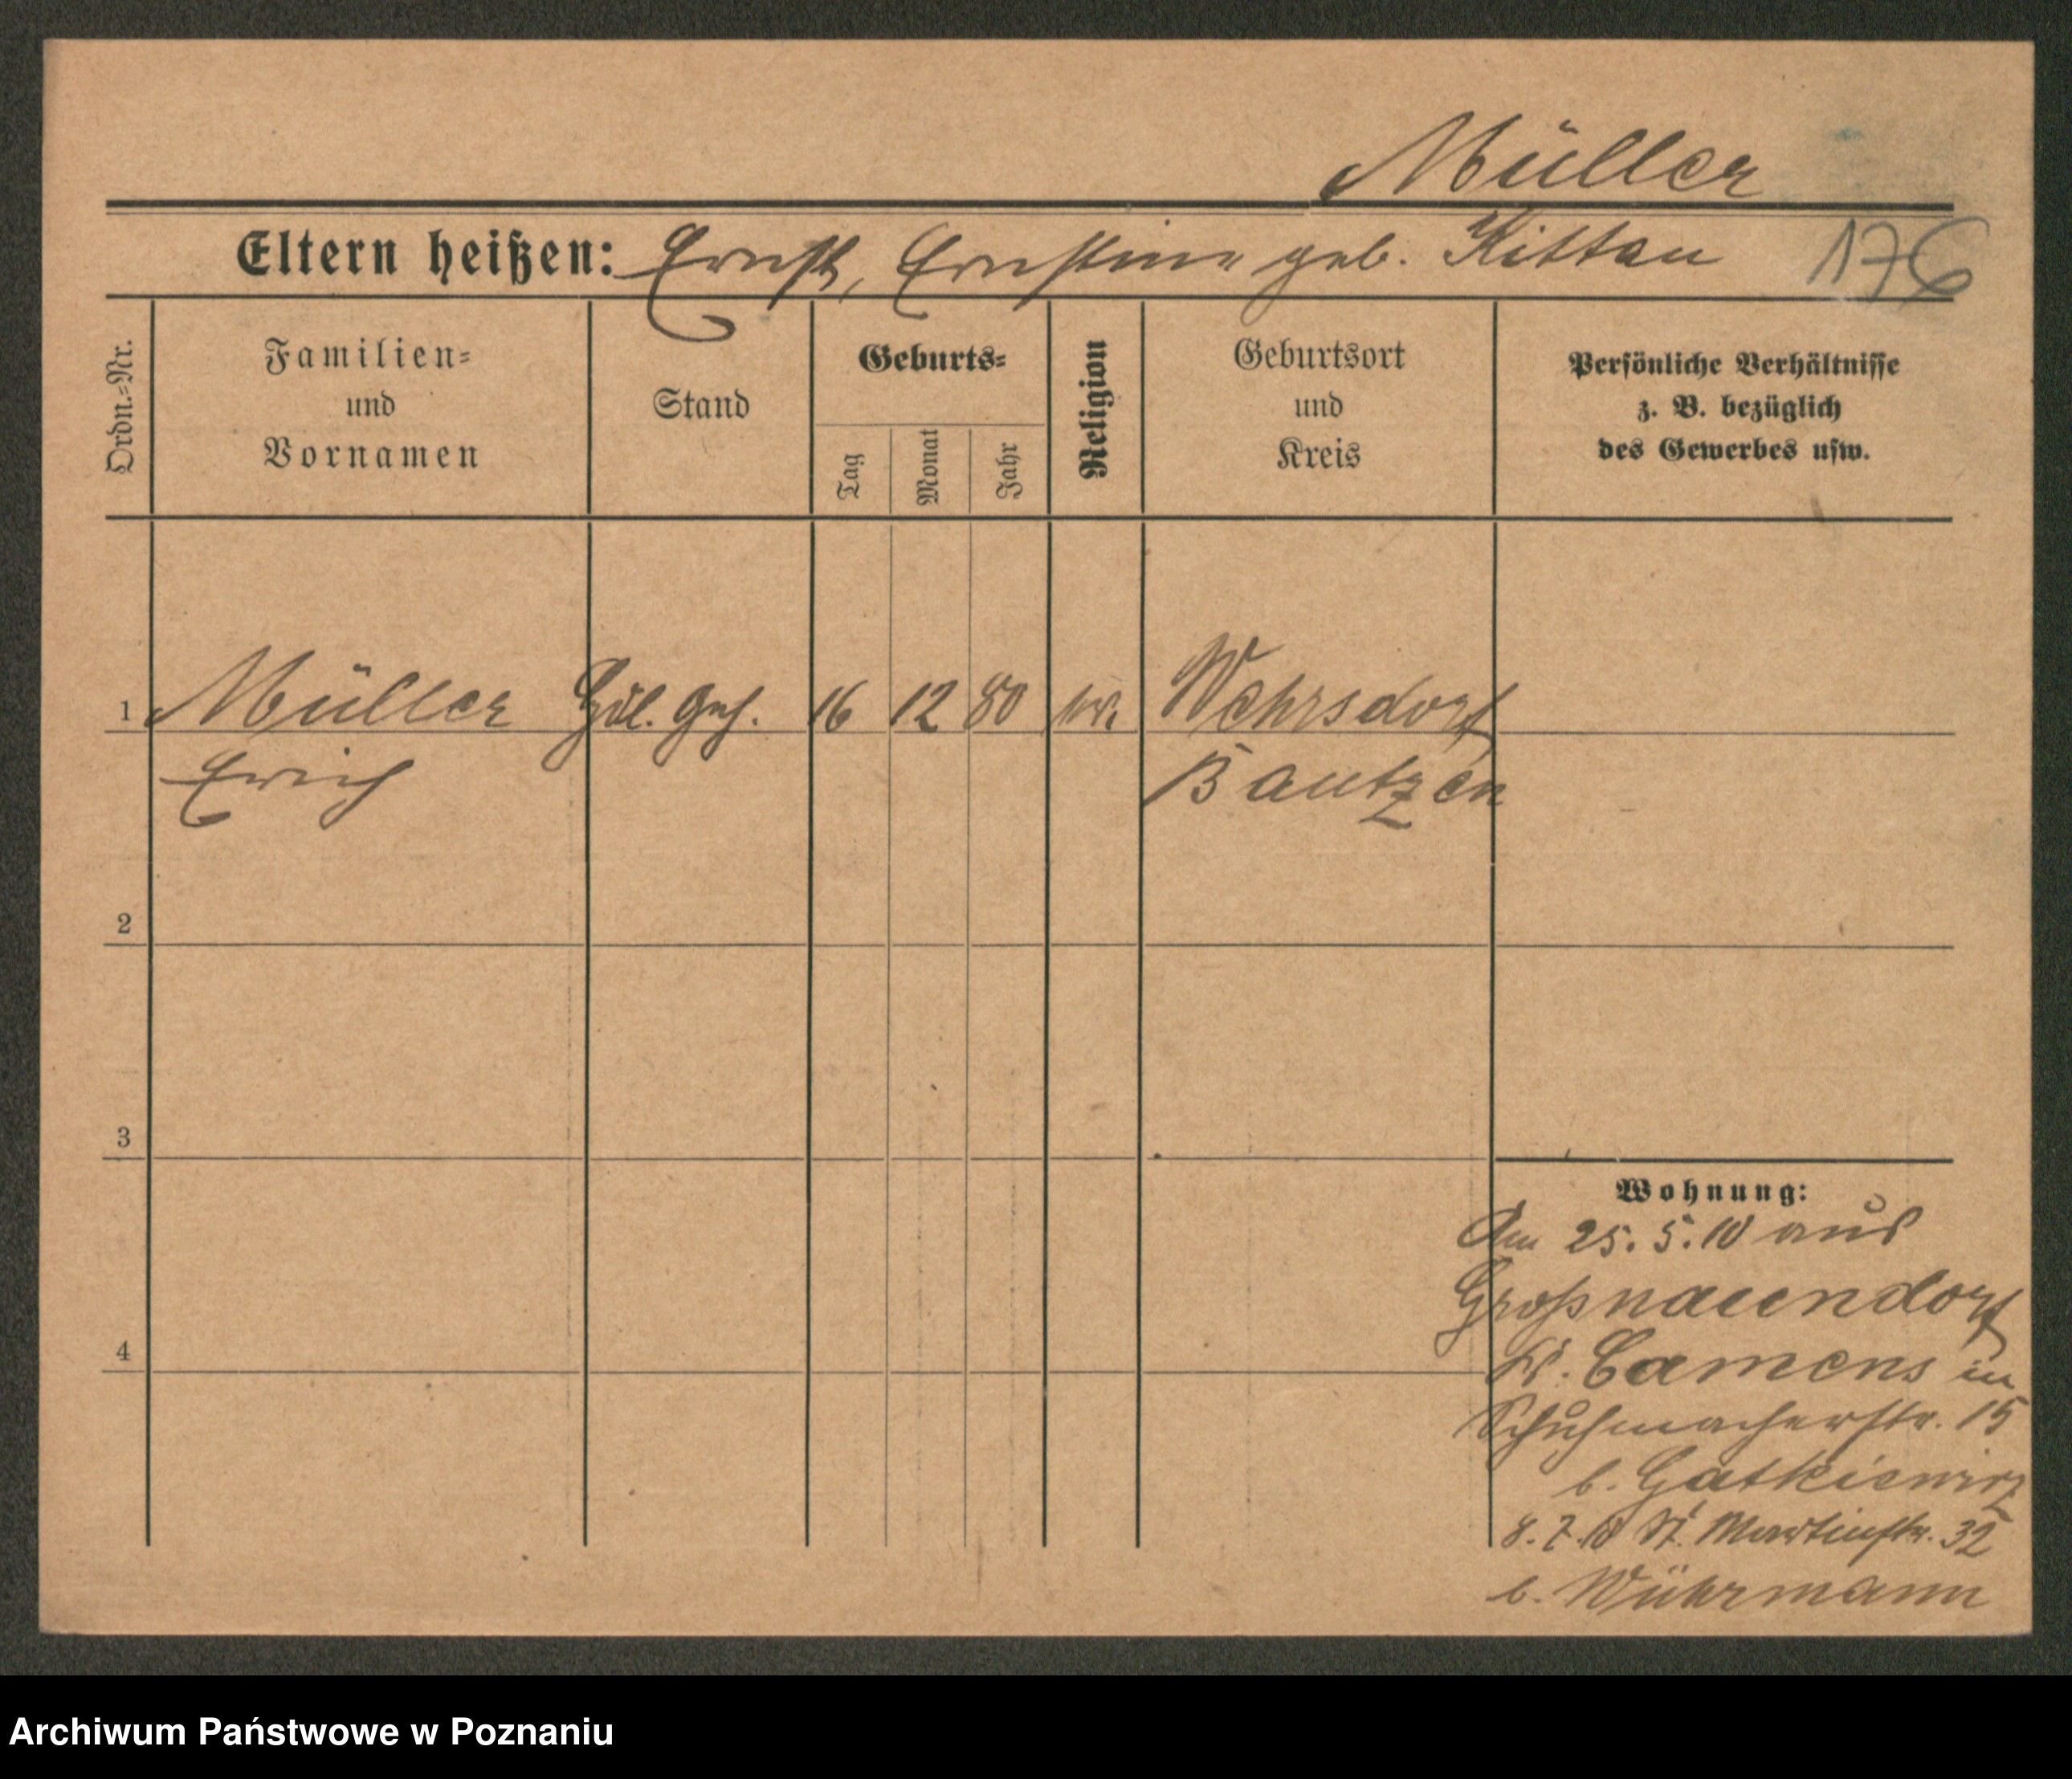 Müller
Eltern heißen: Ernst, Ernstine geb. Kittan 176
Ordn.=Nr.
Familien=
und
Vornamen
Stand
Geburts=
Tag
Monat
Jahr
Religion
Geburtsort
und
Kreis
Persönliche Verhältnisse
z. B. bezüglich
des Gewerbes usw.
1 Müller 16 12 80 Wehrsdorf
Erich Bautzen
2
3
4
Wohnung:
Am 25. 5. 10 aus
Großnaundorf
Kr. Camens in
Schuhmacherstr. 15
b. Gatkiewicz
8. 7. 10 St. Martinstr. 32
b. Wührmann
Archiwum Państwowe w Poznaniu